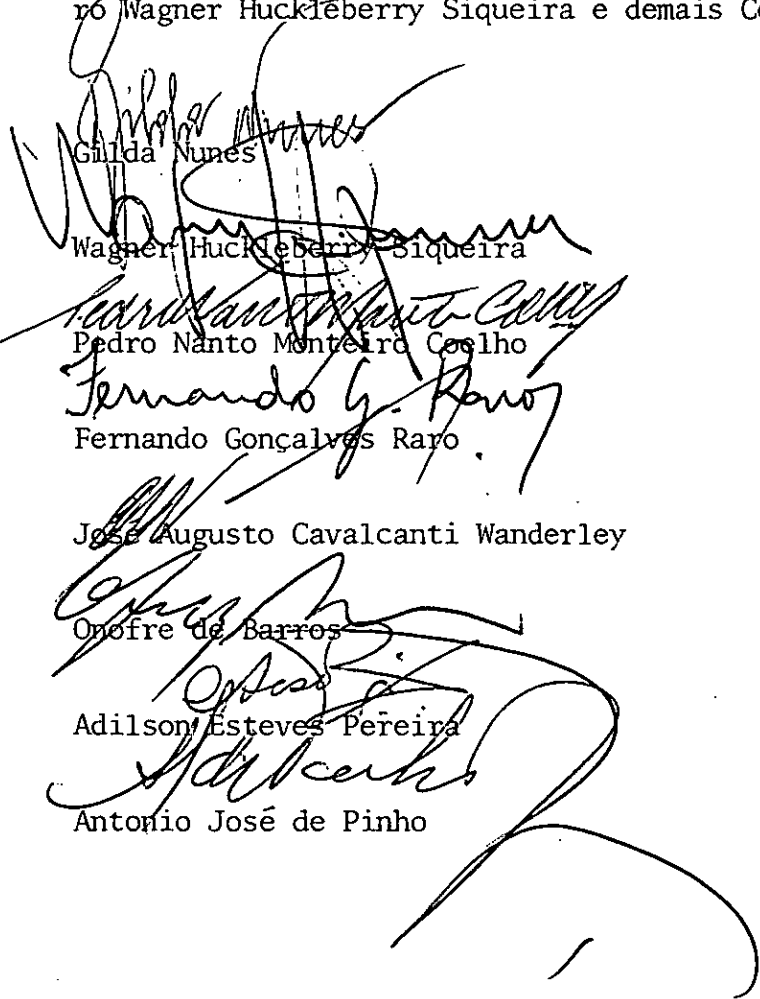 ro Wagner Huckleberry Siqueira e demais Co
Gilda Nunes
Gilda Nunes
Wagner Huckleberry Siqueira
Pedro Nanto Monteiro Coelho
Fernando G. Raro
Fernando Gonçalves Raro
José Augusto Cavalcanti Wanderley
Onofre de Barros
Adilson Esteves Pereira
Antonio José de Pinho